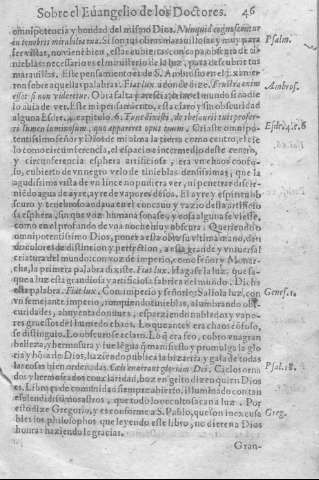 Sobre el Euangelio de los Doctores. 46
omnipotencia y bondad del mismo Dios. Nunquid cognoscentur
in tenebris mirabilia tua. Si son tus obras marauillosas y muy para
ser vistas, no
nieblas necessario es el ministerio de la luz, para descubrir tus
marauillas. Este pensamiento es de S. Ambrosio en el
ron sobre aquellas palabras. Fiat lux adonde dize. Frustra enim
esset si non videretur. Obra falta y
lo auia de ver. Este mi pensamiento, esta claro y sin obscuridad
alguna capitulo. 6. Tunc dixisti, de thesauris tuis profer-
ri lumen luminosum, quo appareret opus tuum. Cria este omnipo-
tentissimo señor y Dios de mi alma la tierra como centro, el cie-
lo como circunferencia, el espacio intermedio desde centro,
y circunferencia esphera artificiosa, era vn chaos confu-
so, cubierto de vn negro velo de tinieblas densissimas, que la
agudissima vista de vn lince no pudiera ver, ni penetrar dister-
medio agua de ayre, ayre de vapores
scuro y tenebroso andaua en el concauo y vazio de la artificio
sa esphera, sin que voz humana sonase, y cosa alguna se viesse,
como en el profundo de vna noche muy obscura. Queriendo el
omnipotentissimo Dios, poner a esta obra su vltima mano, dar
do colores de distincion y perfection, a esta grande y vniuersal
criatura del mundo: con voz de imperio, como señor y Monar-
cha, la primera palabra dixiste. Fiat lux. Hagase la luz, que sa-
quea luz esta grandiosa y artificiosa fabrica del mundo. Dicha
esta palabra. Fiat lux. Con imperio y señorio: Salio la luz, con
vn semejante imperio, rompiendo tinieblas, alumbrando obs-
curidades, ahuyentando nieblas, esparziendo nublados y vapo-
res gruessos del humedo chaos. Lo que antes era chaos cófuso,
se distinguio. Lo obscuro se claro. Lo q̃ era feo, cobro vn agran
belleza, y hermosura y fue lẽgua q̃ manifesto y promulgo la glo
ria y hõra de Dios, haziendo publica la bizarria y gala de todas
las cosas bien ordenadas. Cæli enarrant gloriam Dei. Cielos orna
dos y hermoseados con claridad, boz en grito dizen quien Dios
es. Libros de comunidad siempre abierto, illuminado con tan
esplendidissimos astros, que todo lo oculto saca a luz. Por
esto dize Gregorio, y es conforme a S. Pablo, que son inexcusa
bles los philosophos que leyendo este libro, no dieron a Dios
honra haziendole gracias.
Gran-
Psalm.
Ambros.
Esdr. 4. c. 6
Genes. 1.
Psal. 18.
Greg.